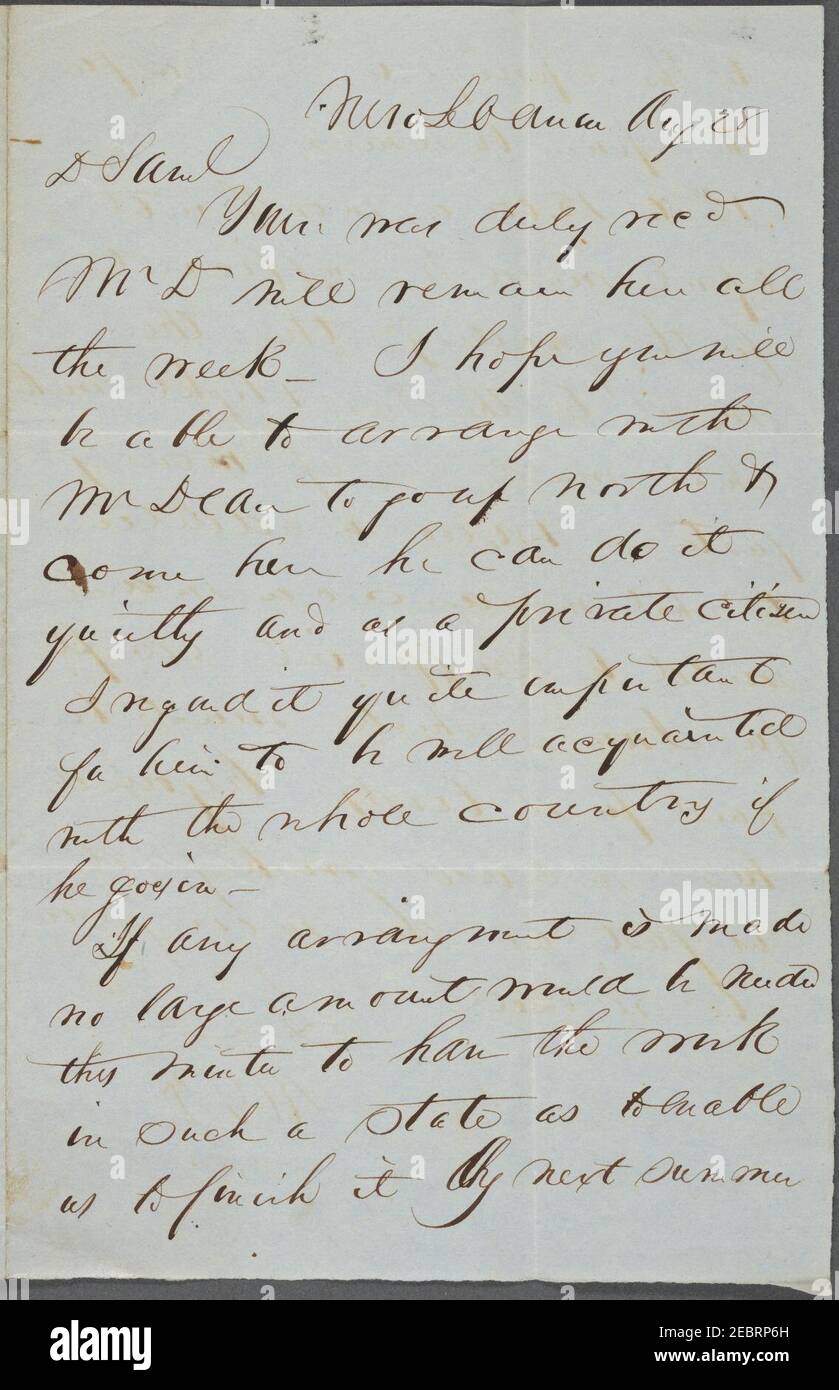 New Lebanon Aug 28
D Saml
Yours was duly recd
Mr D will remain here all
the week – I hope you will
be able to arrange with
Mr Dean to go up north &
come here he can do it
quietly and as a private citizen
I regard it quite important
for him to be well acquainted
with the whole country if
he goes in –
If any arrangment is made
no large amount would be needed
this winter to have the work
in such a state as to enable
us to finish it by next summer
alamy
Image ID: 2EBRP6H
www.alamy.com